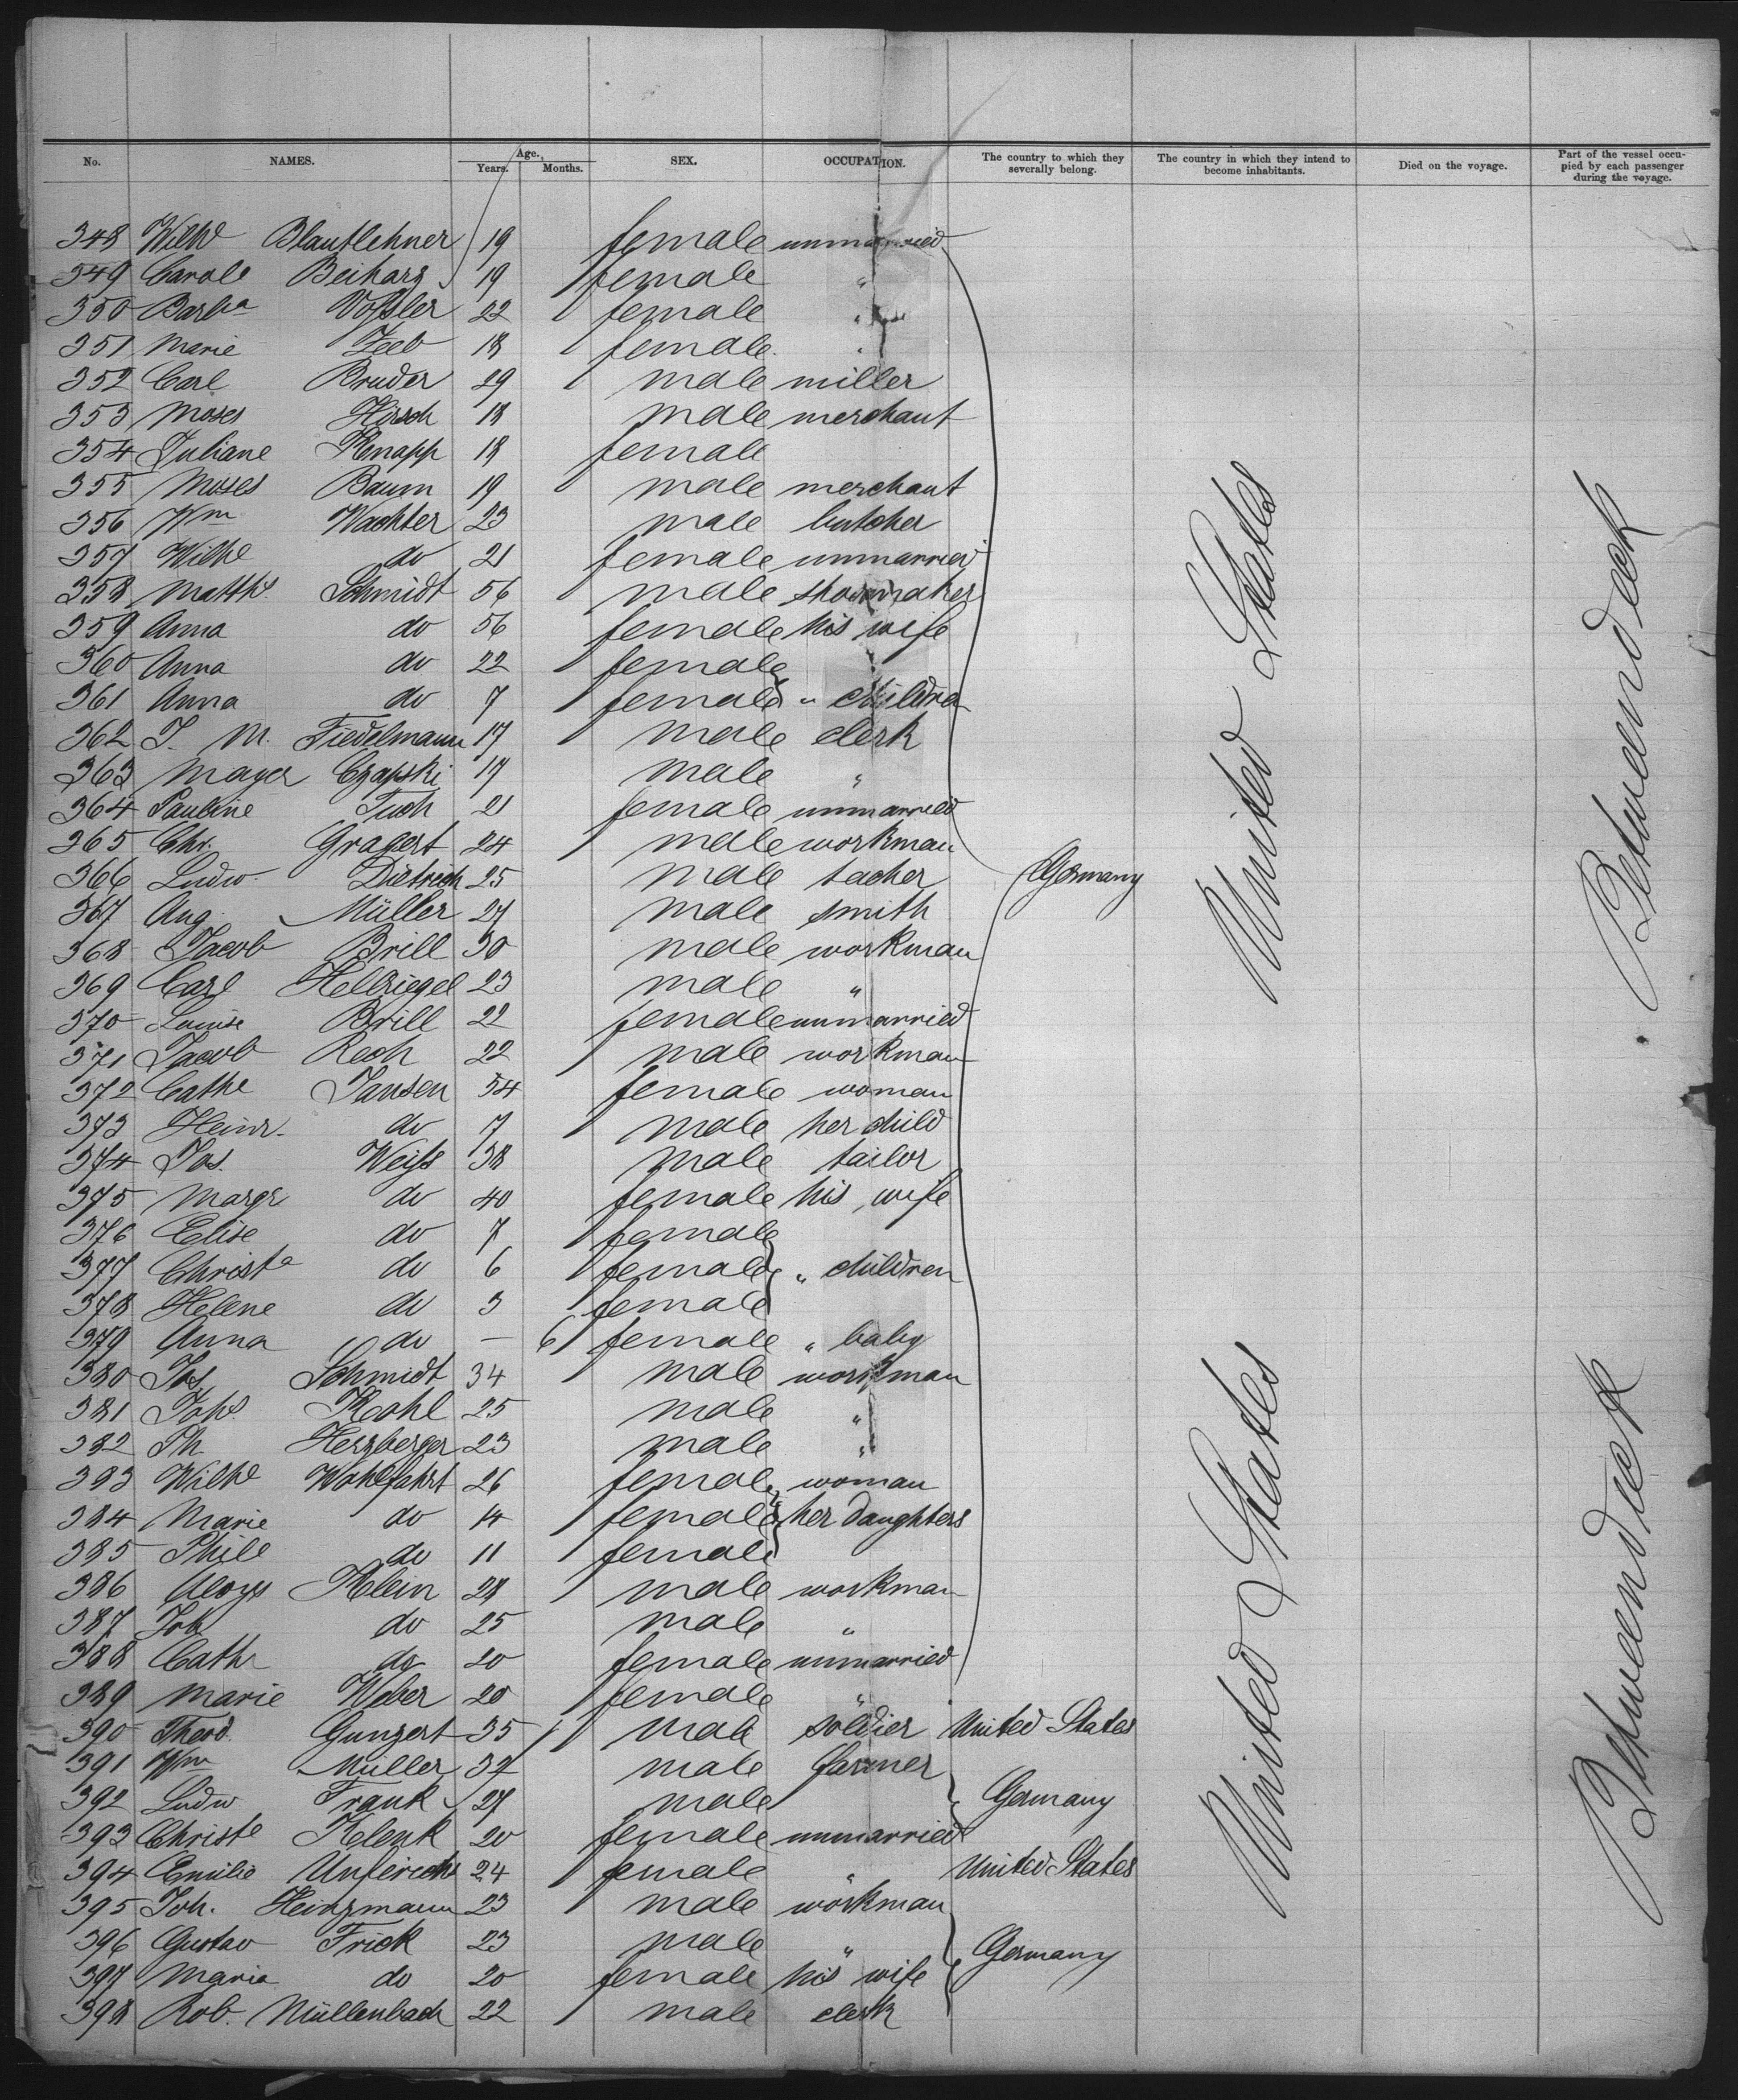 No. NAMES. Age. Years. Months. SEX. OCCUPATION. The country to which they severally belong. The country in which they intend to become inhabitants. Died on the voyage. Part of the vessel occupied by each passenger during the voyage.
348 Wilhe Blautlehner 19 female unmarried
349 Carole Beiharz 19 female "
350 Barba Voßler 22 female "
351 Marie Zeeb 18 female "
352 Carl Bruder 29 male miller
353 Moses Hirsch 18 male merchant
354 Juliane Knapp 18 female
355 Moses Baum 19 male merchant
356 Wm Wachter 23 male butcher
357 Wilhe do 21 female unmarried
358 Matths Schmidt 56 male shoemaker
359 Anna do 56 female his wife
360 Anna do 22 female
361 Anna do 7 female " children
362 J. M. Fiedelmann 17 male clerk
363 Mayer Czapski 17 male "
364 Pauline Tuch 21 female unmarried
365 Chr. Gragert 24 male workman
366 Ludw. Dietrich 25 male tacher Germany
367 Aug. Müller 27 male smith
368 Jacob Brill 30 male workman
369 Carl Hellriegel 23 male "
370 Louise Brill 22 female unmarried
371 Jacob Rech 22 male workman
372 Cathe Jansen 54 female woman
373 Heinr. do 7 male her child
374 Jos. Weiss 38 male tailor
375 Margr do 40 female his wife
376 Elise do 7 female
377 Christa do 6 female " children
378 Helene do 3 female
379 Anna do — 6 female " baby
380 Jos. Schmidt 34 male workman
381 Johs Kohl 25 male "
382 Ph. Herzberger 23 male "
383 Wilhe Wohlfahrt 26 female woman
384 Marie do 14 female her daughters
385 Phile do 11 female
386 Aloys Klein 28 male workman
387 Joh do 25 male "
388 Cathr do 20 female unmarried
389 Marie Weber 20 female "
390 Theod. Gunzert 35 male soldier United States
391 Wm Müller 37 male farmer
392 Ludw Frank 27 male Germany
393 Christe Klenk 20 female unmarried
394 Emilie 24 female " United States
395 Joh. Heinzmann 23 male workman
396 Gustav Frick 23 male " Germany
397 Maria do 20 female his wife
398 Rob. Müllenbach 22 male clerk
United States
United States
Betweendeck
Betweendeck